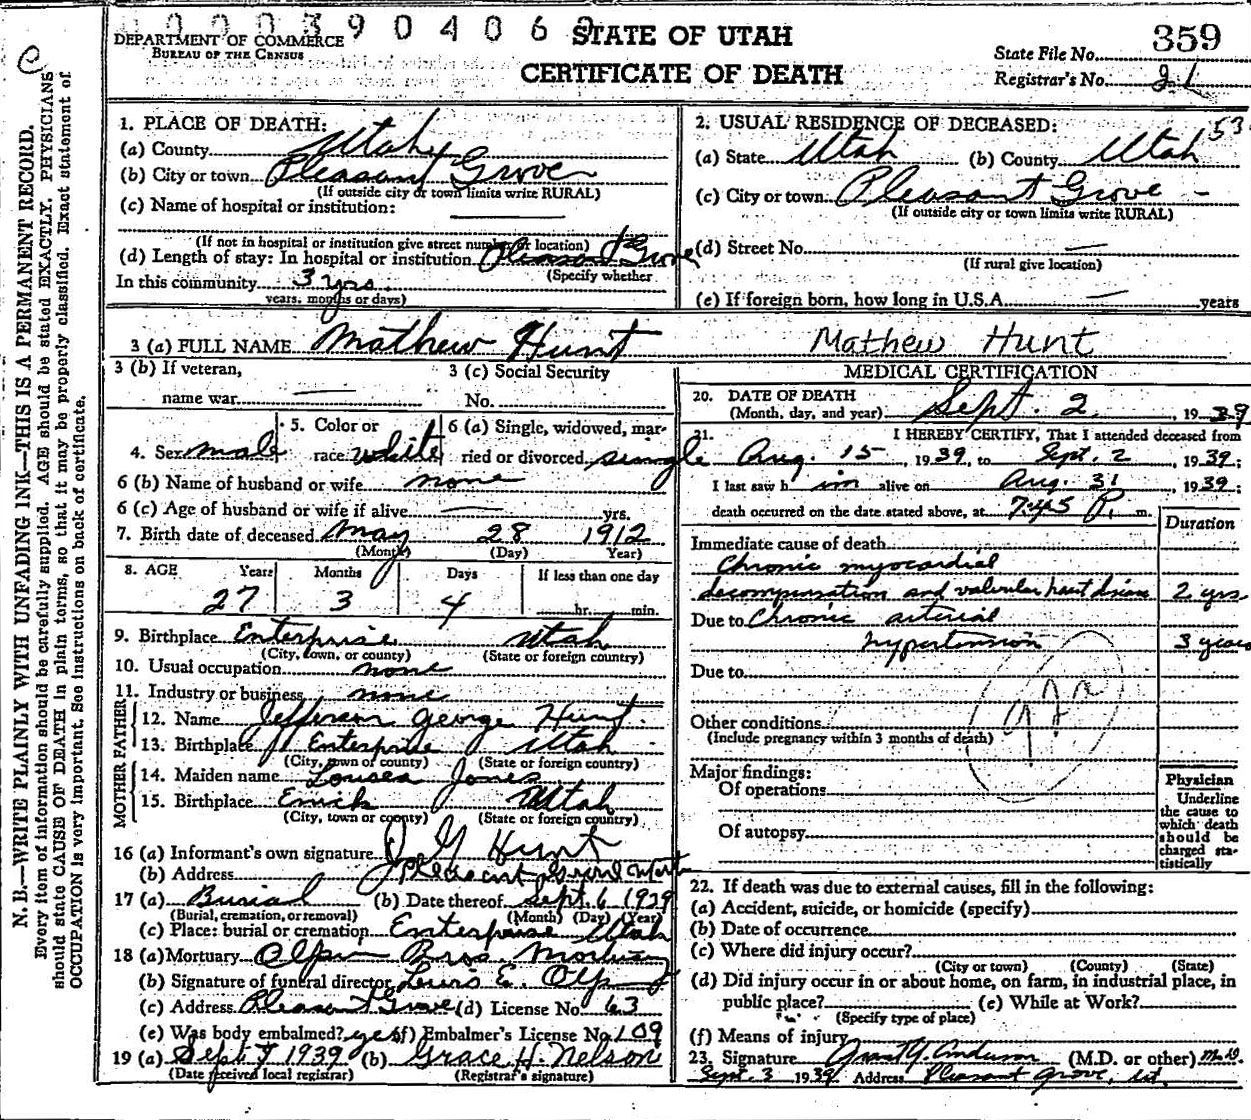 C
N. B.—WRITE PLAINLY WITH UNFADING INK—THIS IS A PERMANENT RECORD.
Every item of information should be carefully supplied. AGE should be stated EXACTLY. PHYSICIANS
should state CAUSE OF DEATH in plain terms, so that it may be properly classified. Exact statement of
OCCUPATION is very important. See instructions on back of certificate.
DEPARTMENT OF COMMERCE
BUREAU OF THE CENSUS
STATE OF UTAH
CERTIFICATE OF DEATH
State File No. 359
Registrar's No. 21
1. PLACE OF DEATH:
(a) County Utah
(b) City or town Pleasant Grove
(If outside city or town limits write RURAL)
(c) Name of hospital or institution:
(If not in hospital or institution give street number or location)
(d) Length of stay: In hospital or institution Pleasant Grove
(Specify whether
In this community 3 yrs.
years, months or days)
2. USUAL RESIDENCE OF DECEASED: 53
(a) State Utah (b) County Utah
(c) City or town Pleasant Grove -
(If outside city or town limits write RURAL)
(d) Street No. —
(If rural give location)
(e) If foreign born, how long in U.S.A. — years
3 (a) FULL NAME Mathew Hunt Mathew Hunt
3 (b) If veteran, 3 (c) Social Security
name war — No.
4. Sex male 5. Color or race white 6 (a) Single, widowed, married or divorced single
6 (b) Name of husband or wife none
6 (c) Age of husband or wife if alive — yrs.
7. Birth date of deceased May 28 1912
(Month) (Day) Year)
8. AGE Years Months Days If less than one day
27 3 4 hr. min.
9. Birthplace Enterprise Utah
(City, town, or county) (State or foreign country)
10. Usual occupation none
11. Industry or business none
FATHER
12. Name Jefferson George Hunt
13. Birthplace Enterprise Utah
(City, town or county) (State or foreign country)
MOTHER
14. Maiden name Jones
15. Birthplace Utah
(City, town or county) (State or foreign country)
16 (a) Informant's own signature J G Hunt
(b) Address Pleasant Grove Utah
17 (a) Burial (b) Date thereof Sept. 6 1939
(Burial, cremation, or removal) (Month) (Day) (Year)
(c) Place: burial or cremation Enterprise Utah
18 (a) Mortuary Olpin Bros. Mortuary
(b) Signature of funeral director Lewis E. Olpin
(c) Address Pleasant Grove (d) License No. 63
(e) Was body embalmed? yes (f) Embalmer's License No. 109
19 (a) Sept 7 1939 (b) Grace H. Nelson
(Date received local registrar) (Registrar's signature)
MEDICAL CERTIFICATION
20. DATE OF DEATH
(Month, day, and year) Sept. 2 1939
21. I HEREBY CERTIFY, That I attended deceased from
Aug. 15, 1939, to Sept. 2, 1939;
I last saw h im alive on Aug. 31, 1939;
death occurred on the date stated above, at P. m.
Duration
Immediate cause of death
Chronic myocardial
decompensation and valvular heart disease 2 yrs
Due to Chronic arterial
hypertension 3 years
Due to
Other conditions
(Include pregnancy within 3 months of death)
Major findings:
Of operations
Of autopsy
Physician
Underline
the cause to
which death
should be
charged sta-
tistically
22. If death was due to external causes, fill in the following:
(a) Accident, suicide, or homicide (specify)
(b) Date of occurrence
(c) Where did injury occur?
(City or town) (County) (State)
(d) Did injury occur in or about home, on farm, in industrial place, in
public place? (e) While at Work?
(Specify type of place)
(f) Means of injury
23. Signature Anderson (M.D. or other) M.D.
Sept. 3 1939 Address Pleasant Grove, Ut.